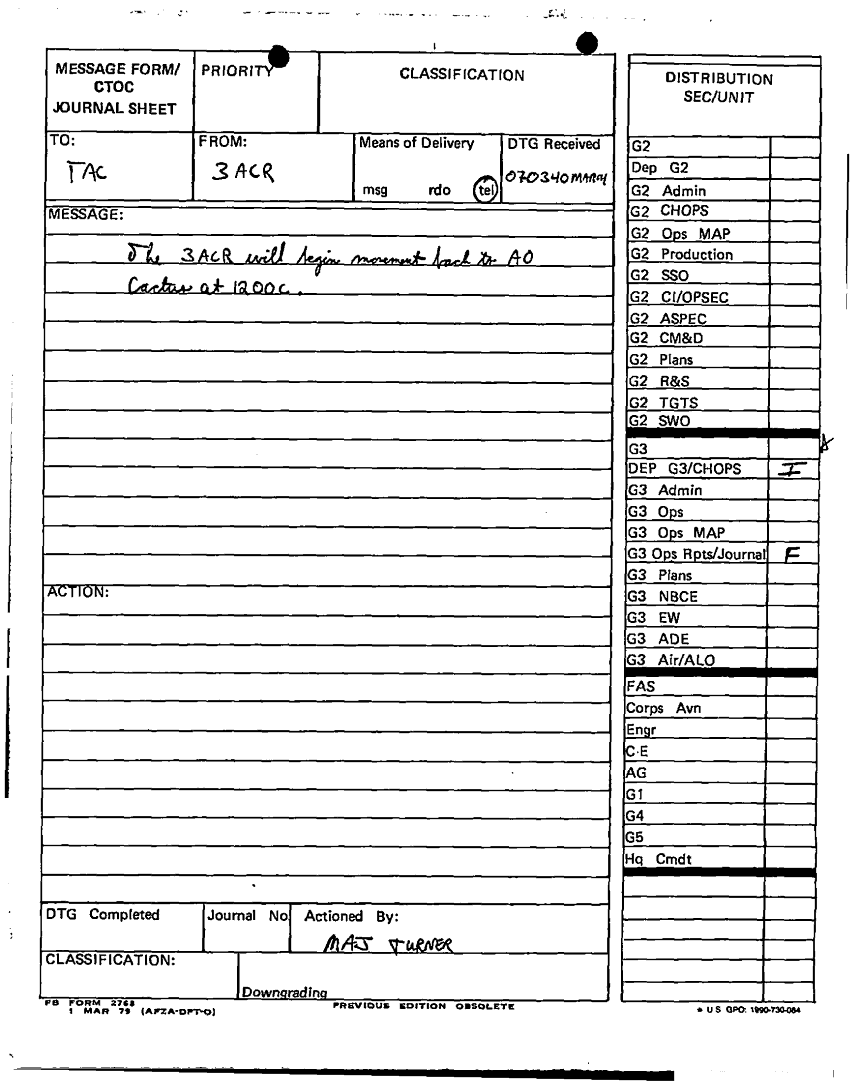 MESSAGE FORM/
CTOC
JOURNAL SHEET
PRIORITY
CLASSIFICATION
TO:
TAC
FROM:
3 ACR
Means of Delivery
msg rdo tel
DTG Received
070340MAR91
MESSAGE:
The 3ACR will begin movement back to AO
Cactus at 1200C.
ACTION:
DTG Completed
Journal No
Actioned By:
MAJ TURNER
CLASSIFICATION:
Downgrading
FB FORM 2768
1 MAR 79 (AFZA-DPT-O)
PREVIOUS EDITION OBSOLETE
DISTRIBUTION
SEC/UNIT
G2
Dep G2
G2 Admin
G2 CHOPS
G2 Ops MAP
G2 Production
G2 SSO
G2 CI/OPSEC
G2 ASPEC
G2 CM&D
G2 Plans
G2 R&S
G2 TGTS
G2 SWO
G3
DEP G3/CHOPS I
G3 Admin
G3 Ops
G3 Ops MAP
G3 Ops Rpts/Journal F
G3 Plans
G3 NBCE
G3 EW
G3 ADE
G3 Air/ALO
FAS
Corps Avn
Engr
C-E
AG
G1
G4
G5
Hq Cmdt
* U S GPO: 1990-730-084